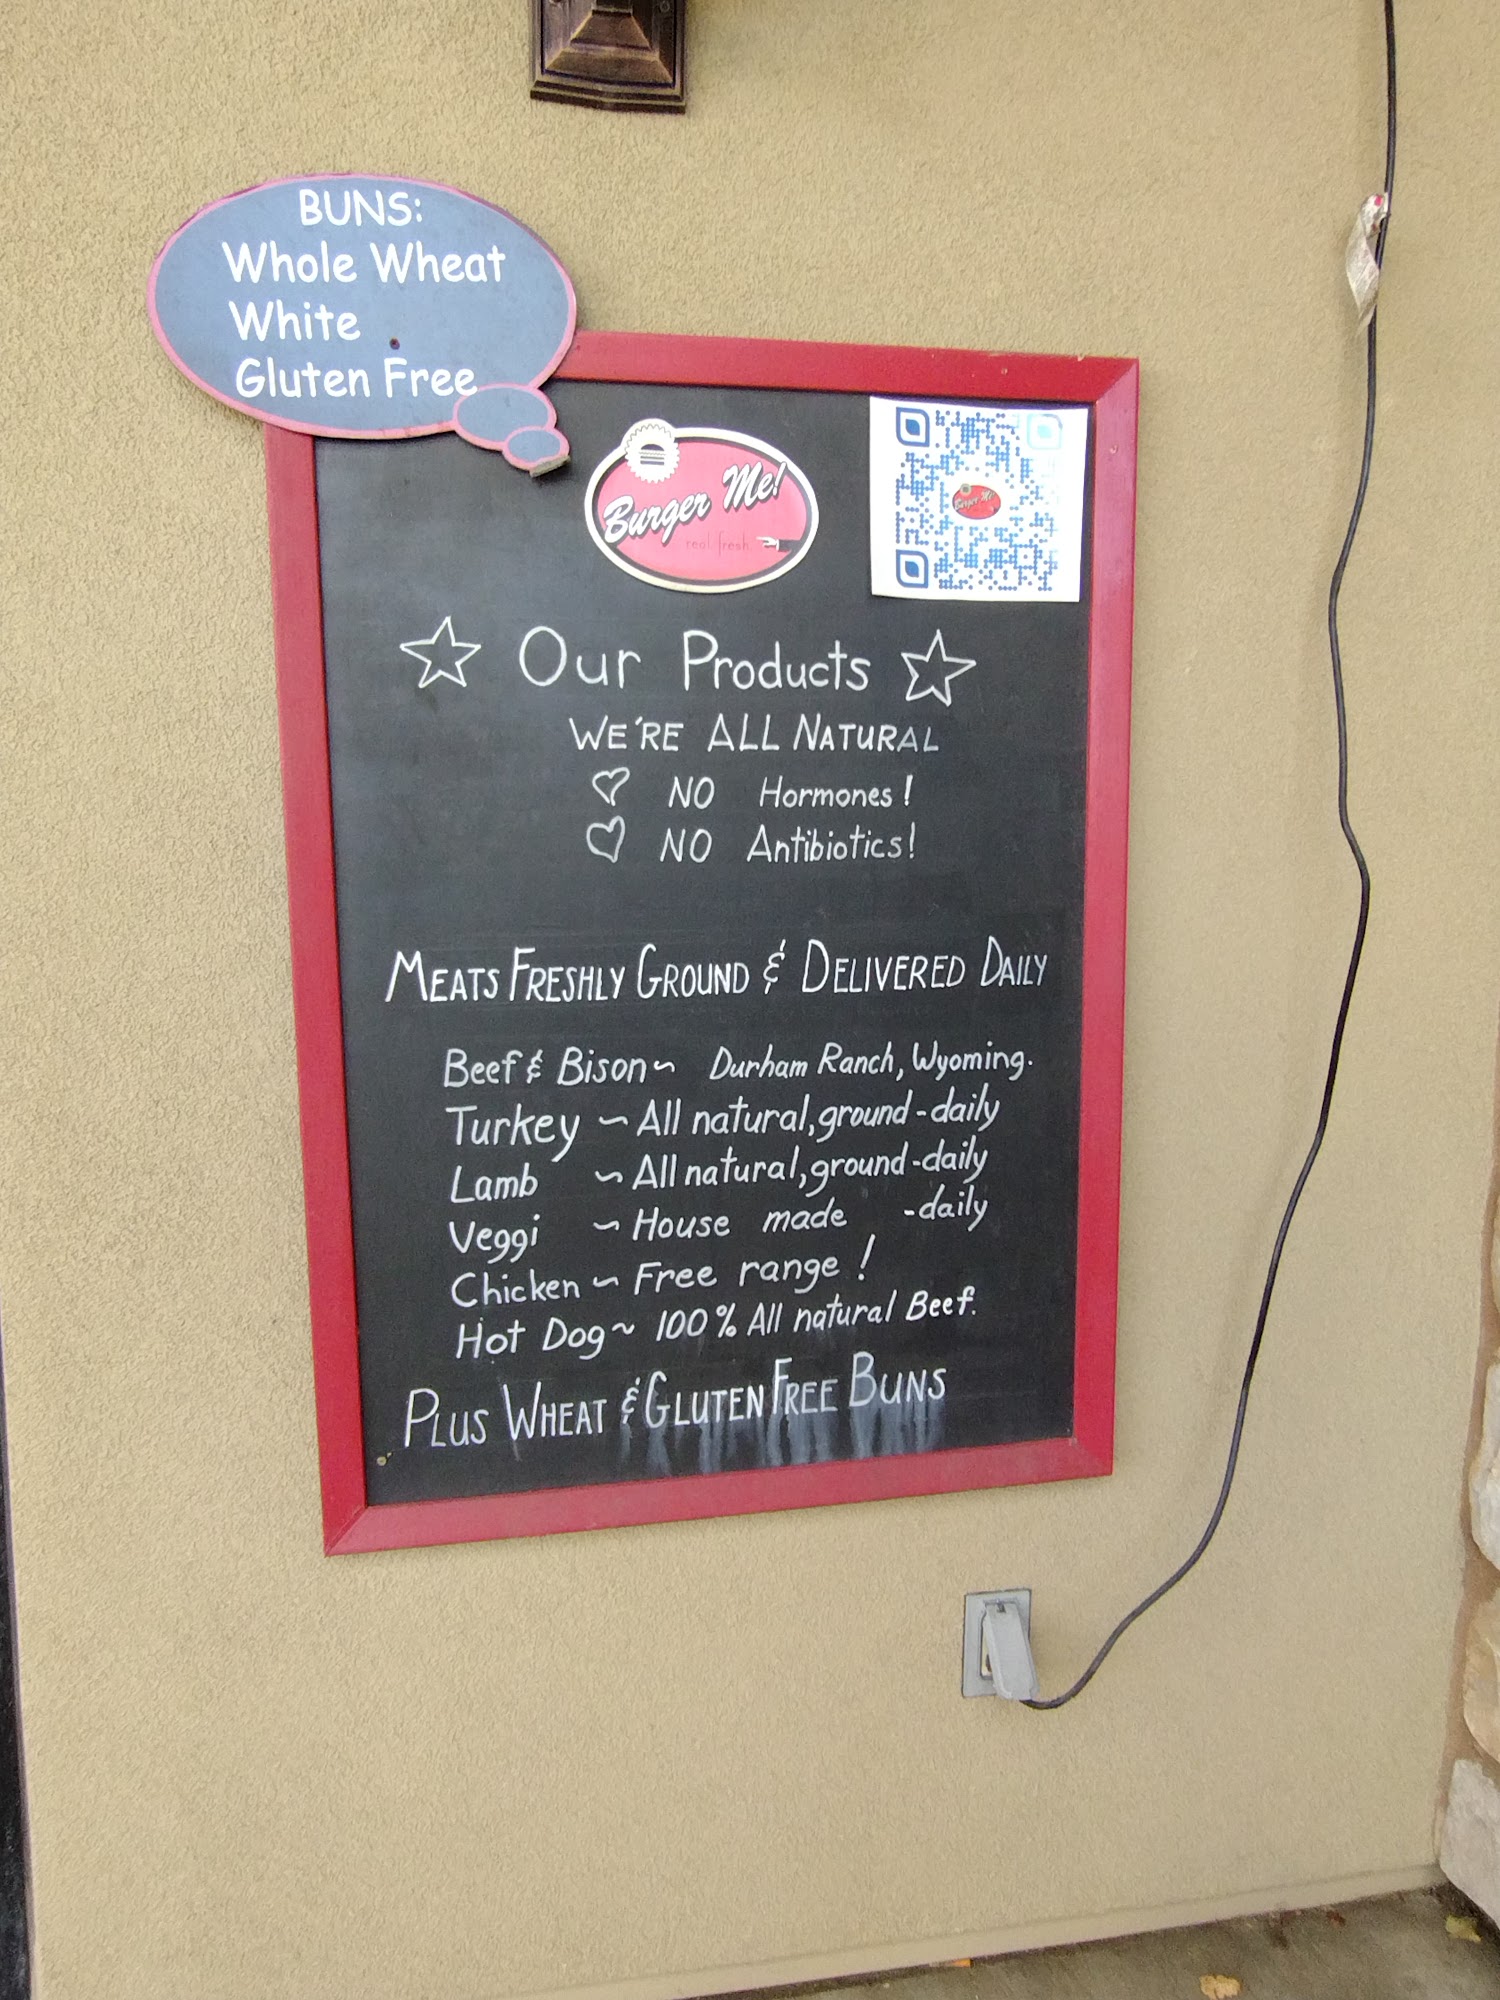 BUNS:
Whole Wheat
White
Gluten Free
Burger Me!
real fresh
Burger Me!
Our Products
WE'RE ALL NATURAL
NO Hormones!
NO Antibiotics!
MEATS FRESHLY GROUND & DELIVERED DAILY
Beef & Bison ~ Durham Ranch, Wyoming.
Turkey ~ All natural, ground-daily
Lamb ~ All natural, ground-daily
Veggi ~ House made -daily
Chicken ~ Free range!
Hot Dog ~ 100% All natural Beef.
PLUS WHEAT & GLUTEN FREE BUNS